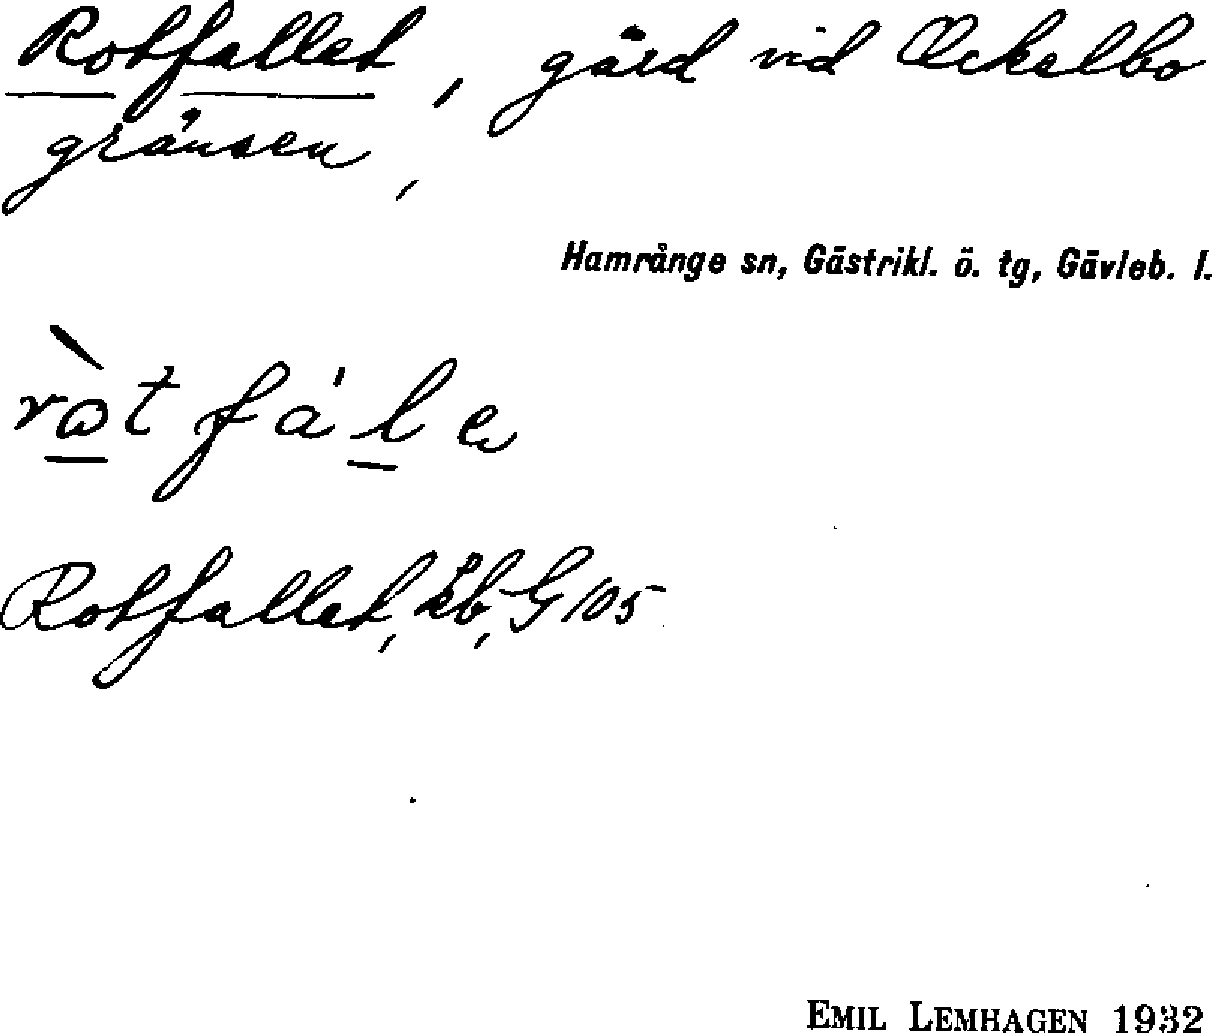 Rotfallet, gård vid Ockelbo
gränsen,
Hamrånge sn, Gästrikl. ö. tg, Gävleb. l.
Rotfallet, kb, G 105
EMIL LEMHAGEN 1932